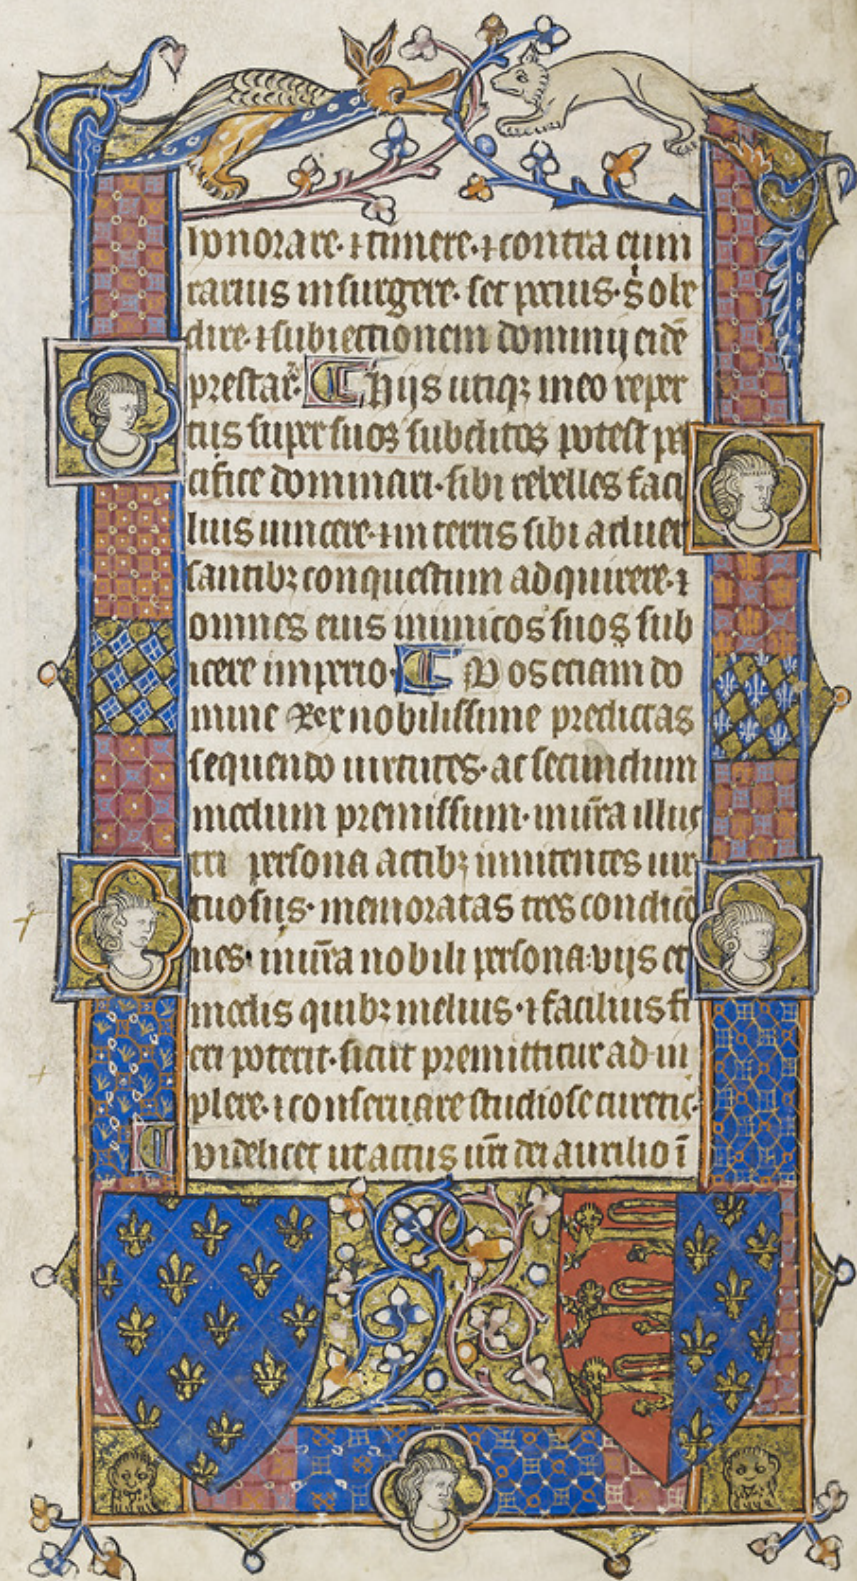 honorare· ⁊ timere· ⁊ contra eum
tarius insurgere· set prius· s obe
dire· ⁊ subiectionem dominij eidē
prestar̄· ¶ hijs utiqꝫ in eo reper
tis super suos subditos potest pa
cifice dominari· sibi rebelles faci
lius uincere· ⁊ in terris sibi aduer
santibꝫ conquestum adquirere· ⁊
omnes eius inimicos suos sub
icere imperio· ¶ Vos etiam do
mine Rex nobilissime predictas
sequendo uirtutes· ac secundum
modum premissum· in ūra illus
tri persona actibꝫ innitentes uir
tuosis· memoratas tres condicio
nes· in ūra nobili persona· vijs et
modis quibꝫ melius· ⁊ facilius fi
eri poterit· sicut premittitur ad in
plere· ⁊ conseruare studiose curetis·
¶ videlicet ut actus ūri dei auxilio ī